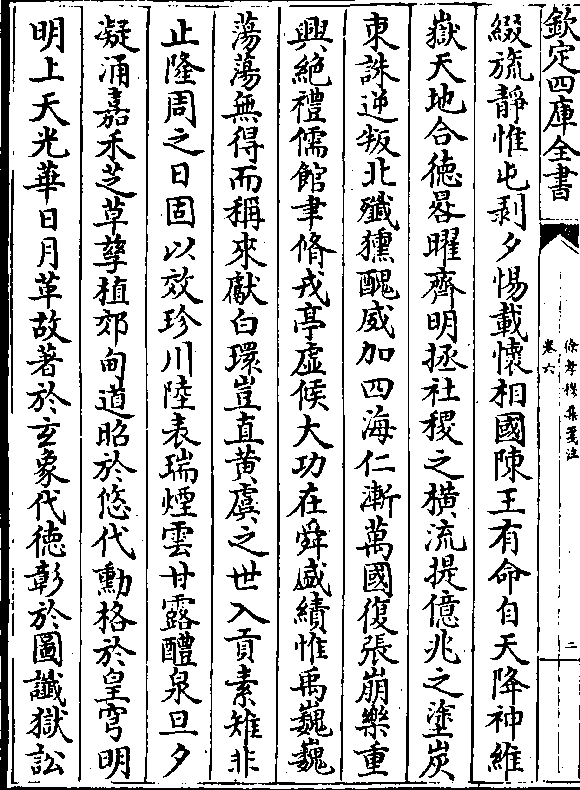 欽定四庫全書
徐孝穆集箋注
卷六
二
綴旒靜惟屯剥夕惕載懷相國陳王有命自天降神維
嶽天地合徳晷曜齊明拯社稷之橫流提億兆之塗炭
東誅逆叛北殲獯醜威加四海仁漸萬國復張崩樂重
興絶禮儒館聿脩戎亭虛候大功在舜盛績惟禹巍巍
蕩蕩無得而稱來獻白環豈直黄虞之世入貢素雉非
止隆周之日固以效珍川陸表瑞煙雲甘露醴泉旦夕
凝涌嘉禾芝草孳植郊甸道昭於悠代勳格於皇穹明
明上天光華日月革故著於玄象代徳彰於圖讖獄訟